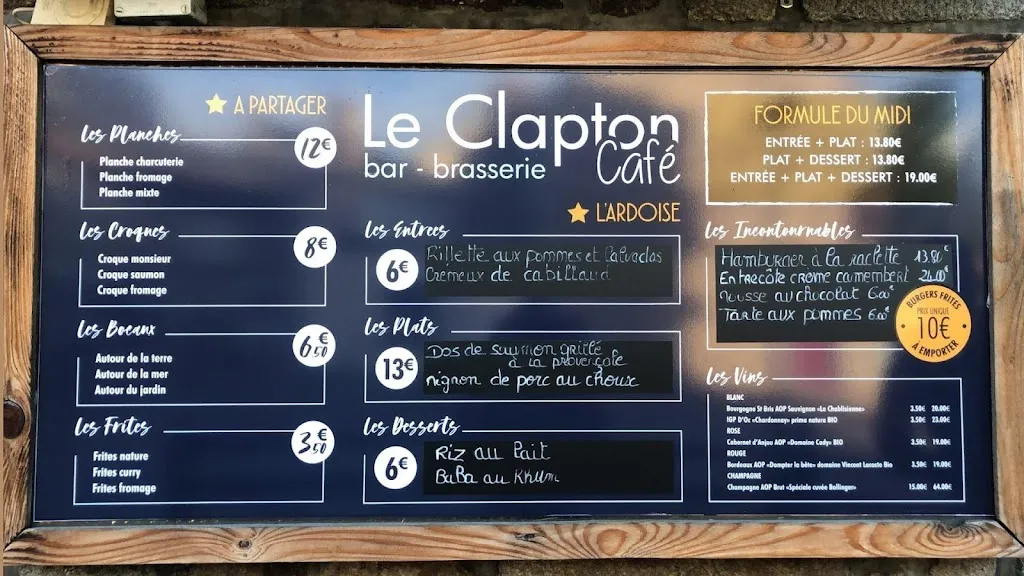 A PARTAGER
Les Planches
12€
Planche charcuterie
Planche fromage
Planche mixte
Les Croques
8€
Croque monsieur
Croque saumon
Croque fromage
Les Bocaux
6€50
Autour de la terre
Autour de la mer
Autour du jardin
Les Frites
3€50
Frites nature
Frites curry
Frites fromage
Le Clapton
Café
bar - brasserie
L'ARDOISE
Les Entrees
6€
Rillette aux pommes et Calvados
Crémeux de cabillaud
Les Plats
13€
Dos de saumon grillé
à la provençale
mignon de porc au choux
Les Desserts
6€
Riz au lait
BaBa au Rhum
FORMULE DU MIDI
ENTRÉE + PLAT : 13.80€
PLAT + DESSERT : 13.80€
ENTRÉE + PLAT + DESSERT : 19.00€
Les Incontournables
Hamburger à la raclette 13.80€
Entrecôte crème camembert 24.00€
mousse au chocolat 6.00€
Tarte aux pommes 6.00€
BURGERS FRITES
PRIX UNIQUE
10€
À EMPORTER
Les Vins
BLANC
Bourgogne St Bris AOP Sauvignon «La Chablisienne» 3.50€ 20.00€
IGP D'Oc «Chardonnay» prima natura BIO 3.50€ 23.00€
ROSE
Cabernet d'Anjou AOP «Domaine Cady» BIO 3.50€ 19.00€
ROUGE
Bordeaux AOP «Dompter la bête» domaine Vincent Lacoste Bio 3.50€ 19.00€
CHAMPAGNE
Champagne AOP Brut «Spéciale cuvée Bollinger» 15.00€ 64.00€